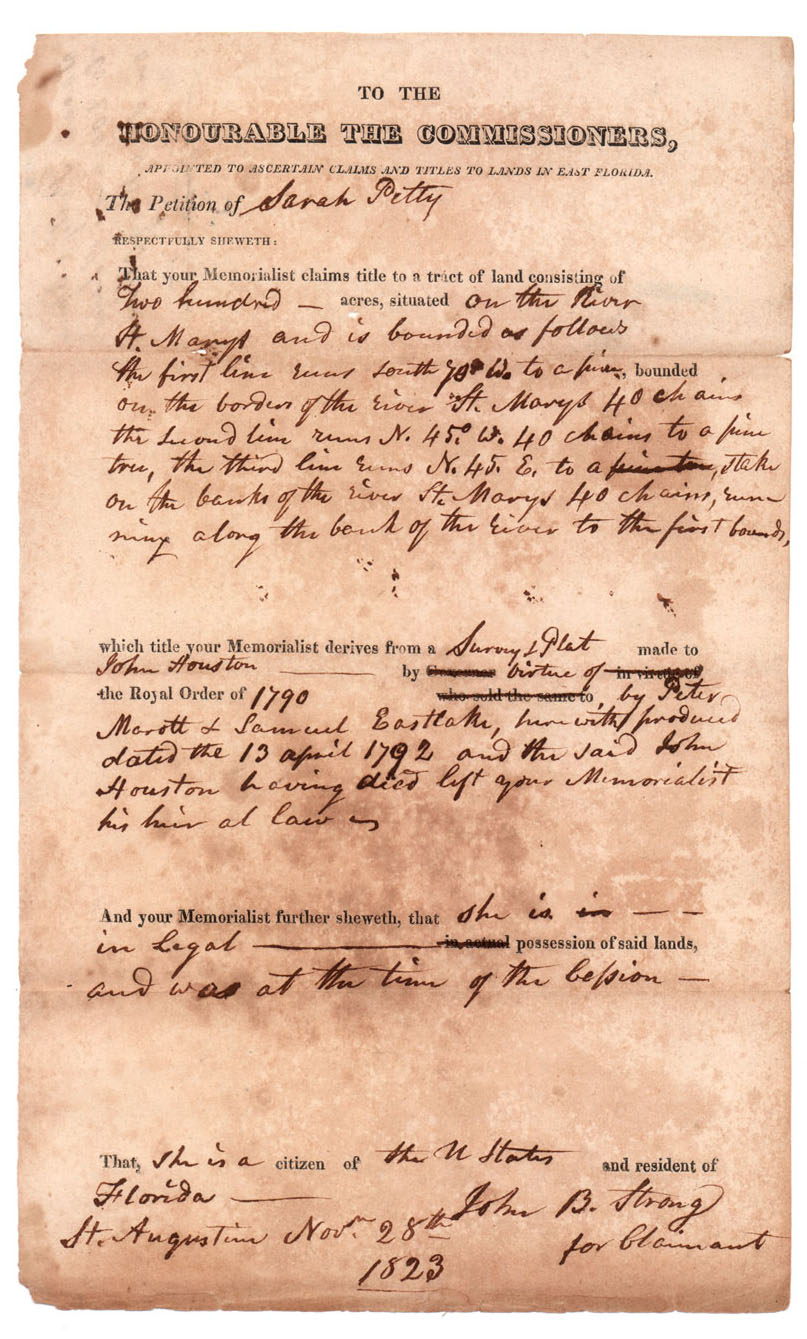 TO THE
HONOURABLE THE COMMISSIONERS,
APPOINTED TO ASCERTAIN CLAIMS AND TITLES TO LANDS IN EAST FLORIDA.
The Petition of Sarah Petty
RESPECTFULLY SHEWETH:
That your Memorialist claims title to a tract of land consisting of
Two hundred — acres, situated on the River
St. Marys and is bounded as follows
the first line runs south 70° W. to a pine, bounded
on the borders of the river St. Marys 40 chains
the second line runs N. 45° W. 40 chains to a pine
tree, the third line runs N. 45. E. to a pine tree, stake
on the banks of the river St. Marys 40 chains, runn
ning along the bank of the river to the first bounds,
which title your Memorialist derives from a Survey & Plat made to
John Houston — by Governor virtue of in virtue of
the Royal Order of 1790 who sold the same to, by Peter
Marott & Samuel Eastlake, herewith produced
dated the 13 april 1792 and the said John
Houston having died left your Memorialist
his heir at law
And your Memorialist further sheweth, that she is in — —
in Legal — in actual possession of said lands,
and was at the time of the Cession —
That, she is a citizen of the U States and resident of
Florida — John B. Strong
St. Augustine Novr. 28th for Claimant
1823